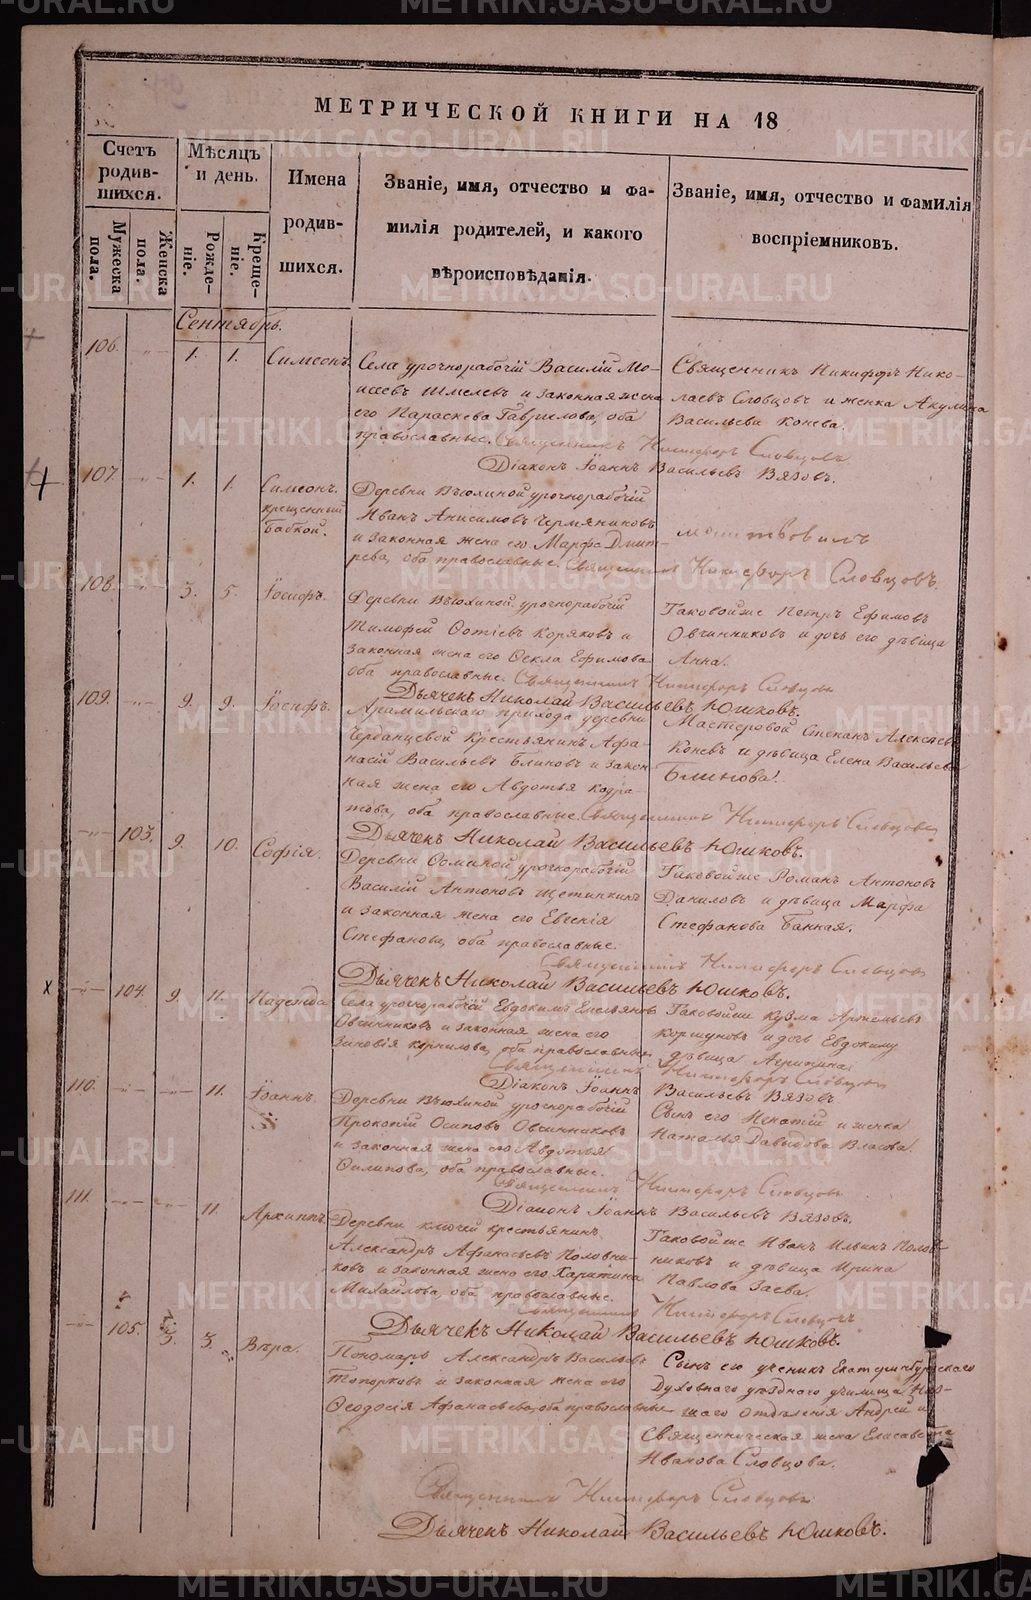 МЕТРИЧЕСКОЙ КНИГИ НА 18
Счетъ родившихся.
Мѣсяцъ и день.
Имена родившихся.
Званіе, имя, отчество и фамилія родителей, и какого вѣроисповѣданія.
Званіе, имя, отчество и фамилія воспріемниковъ.
Мужеска пола.
Женска пола.
Рожденіе.
Крещеніе.
Сентябрь.
106. 1. 1. Симеонъ.
Села урочнорабочій Василій Мо-
исеевъ Шмелевъ и законная жена
его Параскева Гаврилова, оба
православные.
Священникъ Никифоръ Нико-
лаевъ Словцовъ и женка Акулина
Васильева Конева.
Священникъ Никифоръ Словцовъ
Діаконъ Іоаннъ Васильевъ Вязовъ.
107. 1. 1. Симеонъ.
крещенный
бабкой.
Деревни Вьюхиной урочнорабочій
Иванъ Анисимовъ Чермяниновъ
и законная жена его Марфа Дмит-
рева, оба православные.
молитвовилъ
Священникъ Никифоръ Словцовъ.
108. 3. 5. Іосифъ.
Деревни Вьюхиной урочнорабочій
Тимофей Фотіевъ Коряковъ и
законная жена его Фекла Ефимова
оба православные.
Таковойже Петръ Ефимовъ
Овчинниковъ и дочь его дѣвица
Анна.
Священникъ Никифоръ Словцовъ
Дьячекъ Николай Васильевъ Юшковъ.
109. 9. 9. Іосифъ.
Арамильскаго прихода деревни
Крестьянинъ Афа-
насій Васильевъ Блиновъ и закон-
ная жена его Авдотья Кодра-
това, оба православные.
Мастеровой Степанъ Алексѣевъ
Коневъ и дѣвица Елена Васильева
Блинова.
Священникъ Никифоръ Словцовъ
Дьячекъ Николай Васильевъ Юшковъ.
103. 9. 10. Софія.
Деревни Осминой урочнорабочій
Василій Антоновъ Щетинкинъ
и законная жена его Евгенія
Стефанова, оба православные.
Таковойже Романъ Антоновъ
Даниловъ и дѣвица Марфа
Стефанова Банная.
Священникъ Никифоръ Словцовъ
Дьячекъ Николай Васильевъ Юшковъ.
104. 9. 11. Надежда
Села урочнорабочій Евдокимъ Емельяновъ
Овчинниковъ и законная жена его
Зиновія Корнилова, оба православные
Таковойже Кузма Артемьевъ
Коршуновъ и дочь Евдокиму
дѣвица Агрипина
Священникъ Никифоръ Словцовъ
Діаконъ Іоаннъ Васильевъ Вязовъ
110. 11. Іоаннъ.
Деревни Вьюхиной урочнорабочій
Прокопій Осиповъ Овчинниковъ
и законная жена его Авдотья
Филипова, оба православные.
Сынъ его Игнатій и женка
Наталья Давыдова Власова.
Священникъ Никифоръ Словцовъ
Діаконъ Іоаннъ Васильевъ Вязовъ.
111. 11. Архиппъ
Деревни Ключей крестьянинъ
Александръ Афанасьевъ Половни-
ковъ и законная жена его Харитина
Михайлова, оба православные.
Таковойже Иванъ Ильинъ Полов-
никовъ и дѣвица Ирина
Павлова Заева.
Священникъ Никифоръ Словцовъ
Дьячекъ Николай Васильевъ Юшковъ.
105. 3. 3. Вѣра.
Пономарь Александръ Васильевъ
Топорковъ и законная жена его
Феодосія Афанасьева, оба православные
Сынъ его ученикъ Екатеринбургскаго
Духовнаго уѣзднаго училища Низ-
шаго отдѣленія Андрей и
Священническая жена Елисавета
Иванова Словцова.
Священникъ Никифоръ Словцовъ
Дьячекъ Николай Васильевъ Юшковъ.
METRIKI.GASO-URAL.RU